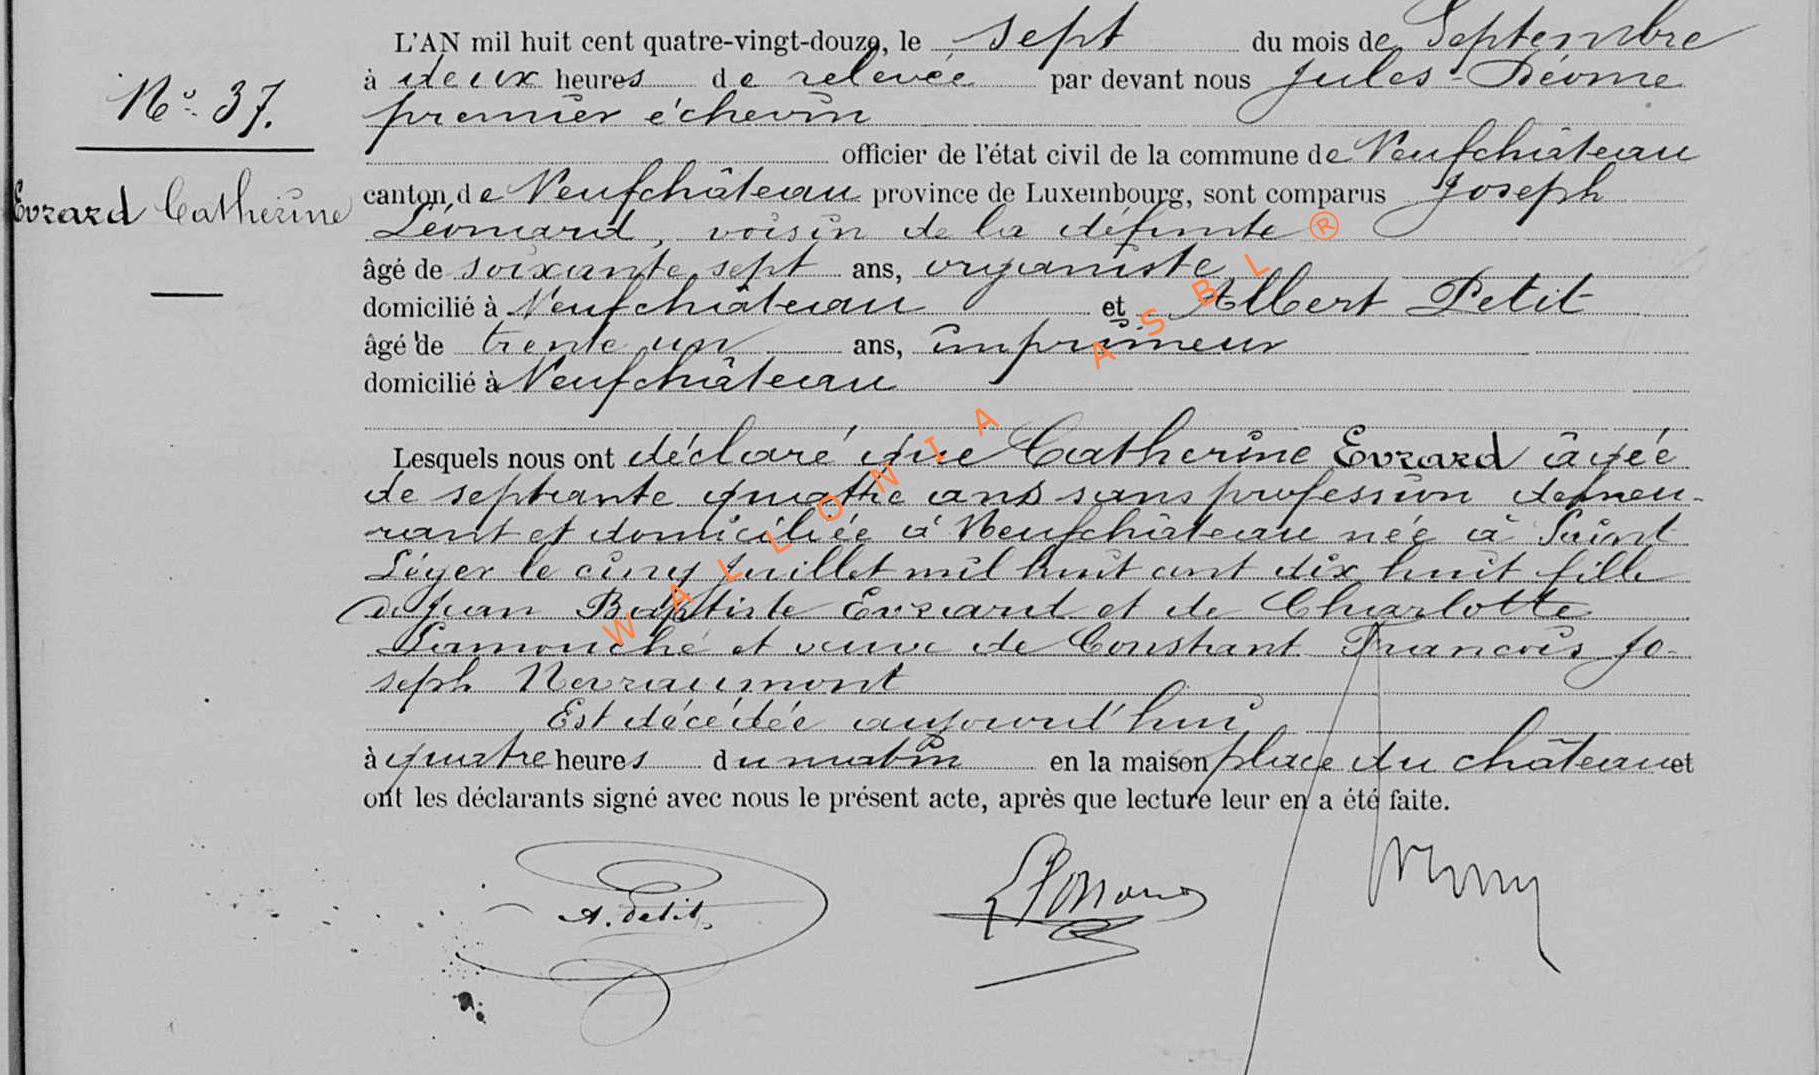 L'AN mil huit cent quatre-vingt-douze, le sept du mois de Septembre
à deux heures de relevée par devant nous Jules Déome
premier échevin
officier de l'état civil de la commune de Neufchâteau
canton de Neufchâteau province de Luxembourg, sont comparus Joseph
Léonard, voisin de la défunte
âgé de soixante sept ans, organiste
domicilié à Neufchâteau et Albert Petit
âgé de trente un ans, imprimeur
domicilié à Neufchâteau
Lesquels nous ont déclaré que Catherine Evrard âgée
de septante quatre ans sans profession demeu-
rant et domiciliée à Neufchâteau née à Saint
Léger le cinq Juillet mil huit cent dix huit fille
de Jean Baptiste Evrard et de Charlotte
Lamouche et veuve de Constant François Jo-
seph Nevraumont
Est décédée aujourd'hui
à quatre heures du matin en la maison place du château et
ont les déclarants signé avec nous le présent acte, après que lecture leur en a été faite.
A. Petit
No 37.
Evrard Catherine
WALLONIA ASBL ®